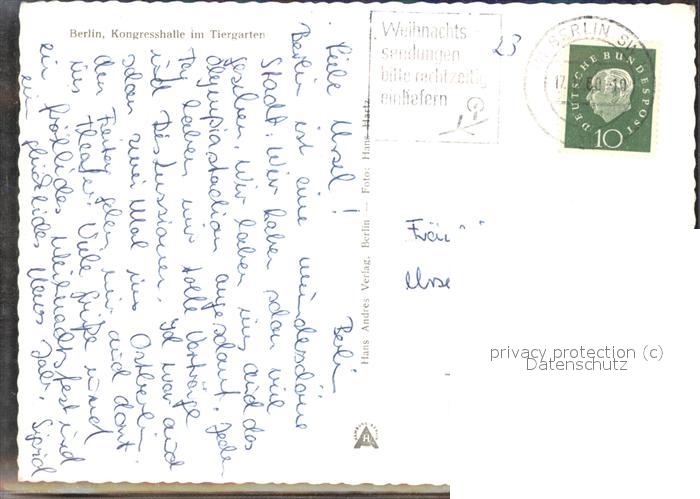 Berlin, Kongresshalle im Tiergarten
Berlin
Liebe Ursel!
Berlin ist eine wunderschöne
Stadt. Wir haben schon viel
gesehen. Wir haben uns auch das
Olympiastadion angeschaut. Jeden
Tag haben wir tolle Vorträge
und Diskussionen. Ich war auch
schon zwei Mal in Ostberlin.
den Freitag gehen wir auch dort
ins Theater. Viele Grüße und
ein fröhliches Weihnachtsfest und
ein glückliches Neues Jahr. Sigrid
Hans Andres Verlag, Berlin — Foto: Hans Hartz
H
Weihnachts-
sendungen
bitte rechtzeitig
einliefern
23
BERLIN SW
DEUTSCHE BUNDESPOST
10
Fräu
Urse
privacy protection (c)
Datenschutz